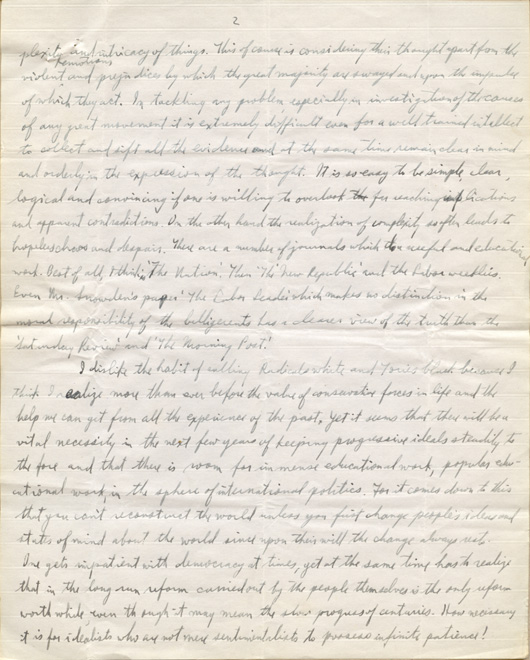 2
plexity and intricacy of things. This of course is considering their thought apart from the
violent emotions and prejudices by which the great majority are swayed and upon the impulse
of which they act. In tackling any problem especially in investigation of the causes
of any great movement it is extremely difficult even for a well trained intellect
to collect and sift all the evidence and at the same time remain clear in mind
and orderly in the expression of the thought. It is so easy to be simple, clear,
logical and convincing if one is willing to overlook the far reaching implications
and apparent contradictions. On the other hand the realization of complexity so often leads to
hopeless chaos and despair. There are a number of journals which do useful and educational
work. Best of all, I think, 'The Nation'. Then 'The New Republic' and the Labor weeklies.
Even Mr. Snowden's paper 'The Labor Leader' which makes no distinction in the
moral responsibility of the belligerents has a clearer view of the truth than the
'Saturday Review' and 'The Morning Post'.
I dislike the habit of calling Radicals white and Tories black because I
think I realize more than ever before the value of conservative forces in life and the
help we can get from all the experience of the past. Yet it seems that there will be a
vital necessity in the next few years of keeping progressive ideals steadily to
the fore and that there is room for immense educational work, popular edu-
cational work, in the sphere of international politics. For it comes down to this
that you can't reconstruct the world unless you first change people's ideas and
states of mind about the world since upon their will the change always rests.
One gets impatient with democracy at times, yet at the same time has to realize
that in the long run reform carried out by the people themselves is the only reform
worth while, even though it may mean the slow progress of centuries. How necessary
it is for idealists who are not mere sentimentalists to possess infinite patience!